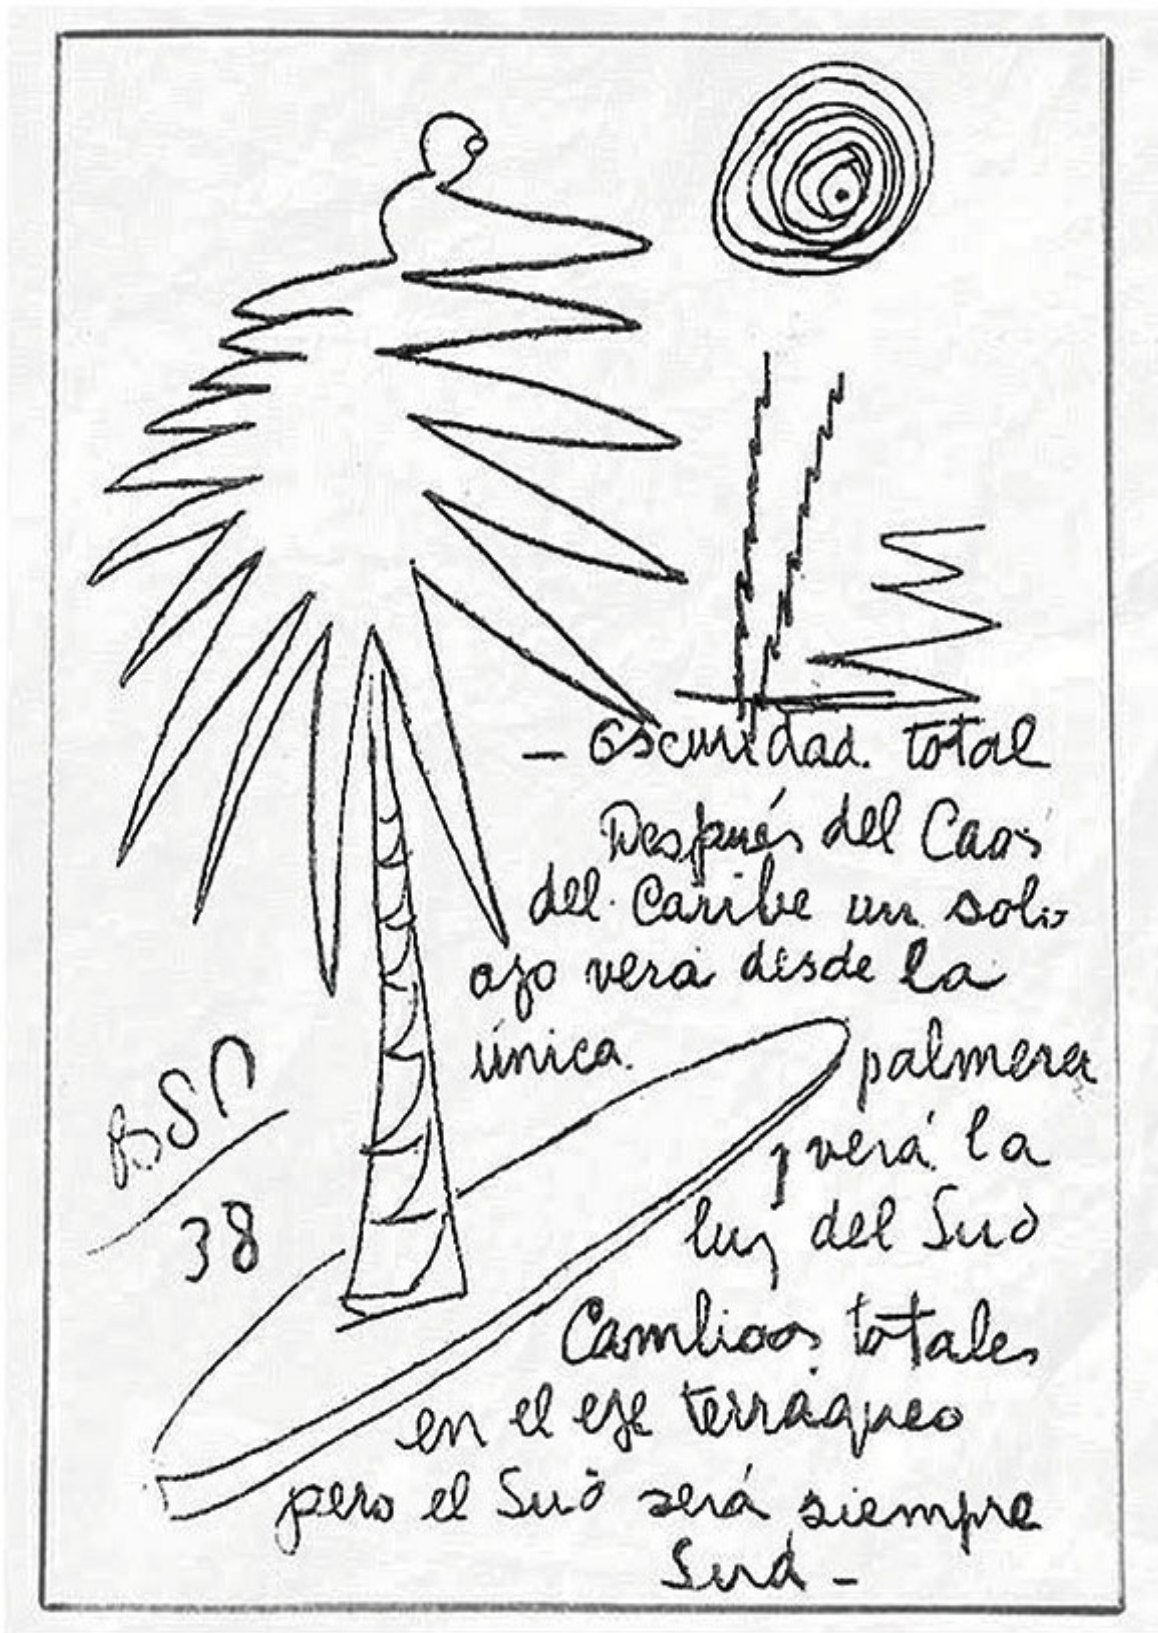 - Oscuridad. total
Después del Caos
del. Caribe un solo
ojo verá desde la
única. palmera
y verá la
luz del Sud
Cambios totales
en el eje terráqueo
pero el Sud será siempre
Sud -
BSP
38